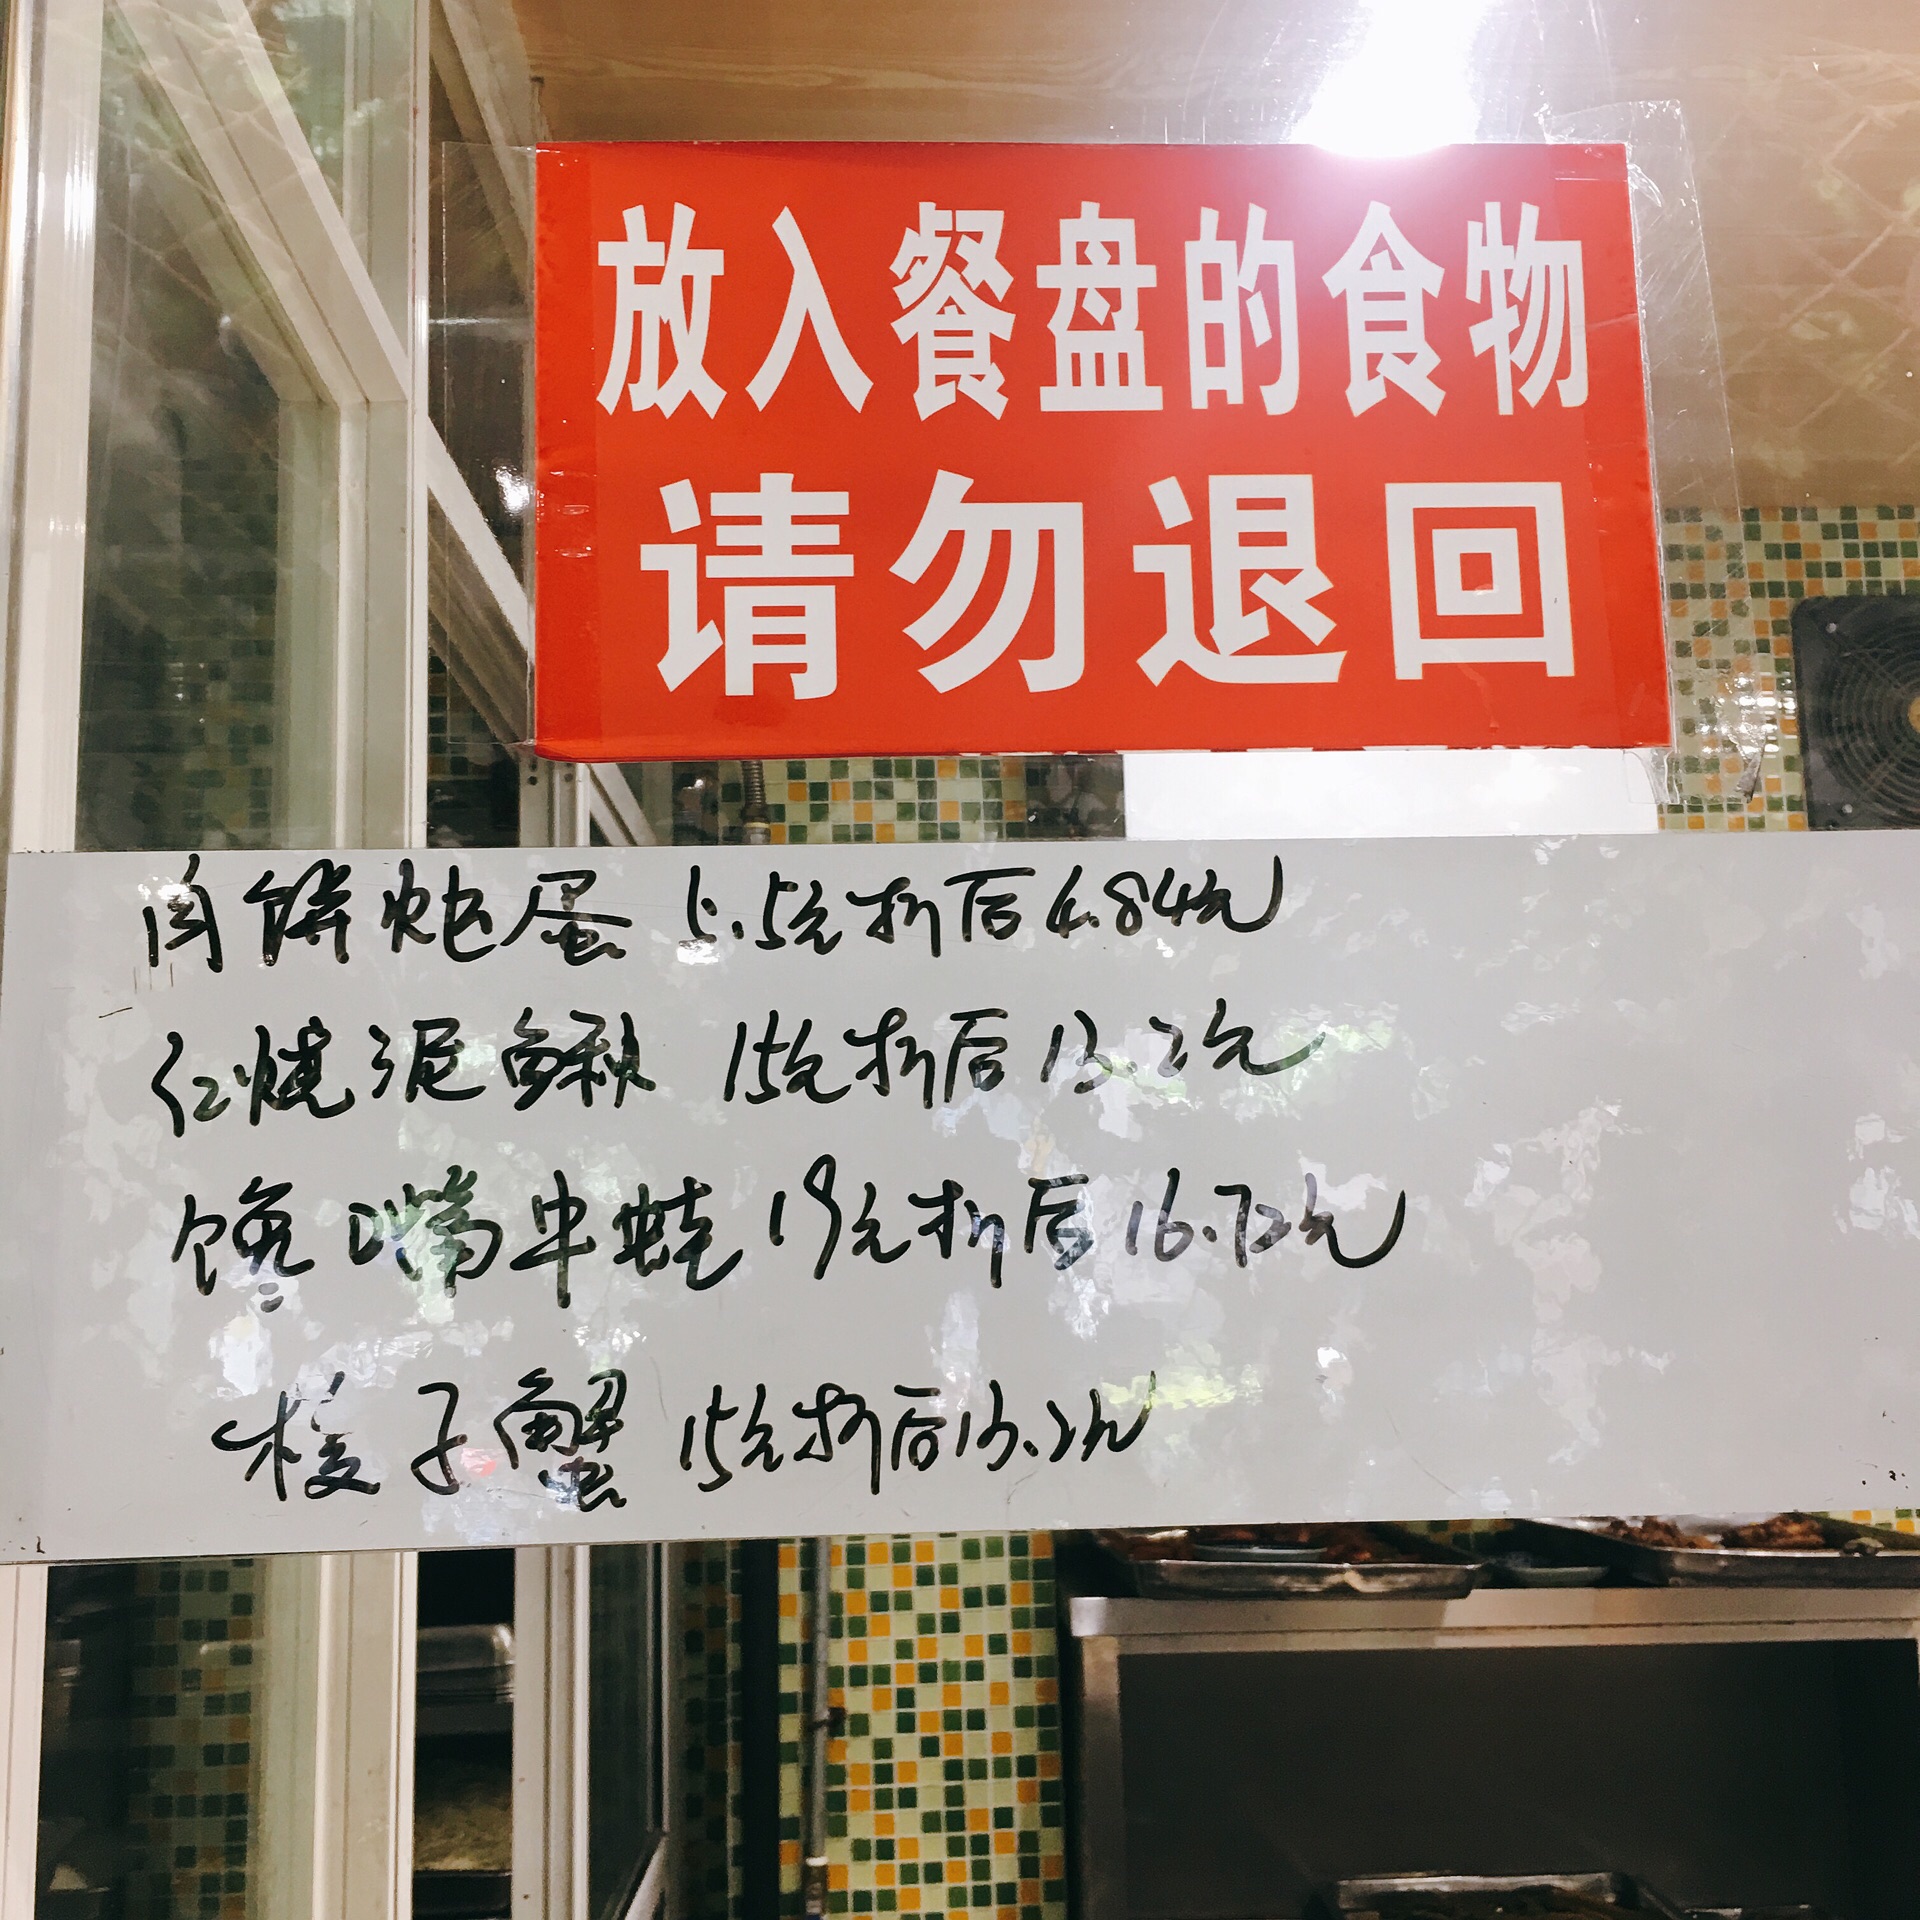 放入餐盘的食物
请勿退回
肉饼炖蛋 5.5元折后4.84元
红烧泥鳅 15元折后13.2元
馋嘴牛蛙 19元折后16.72元
梭子蟹 15元折后13.2元